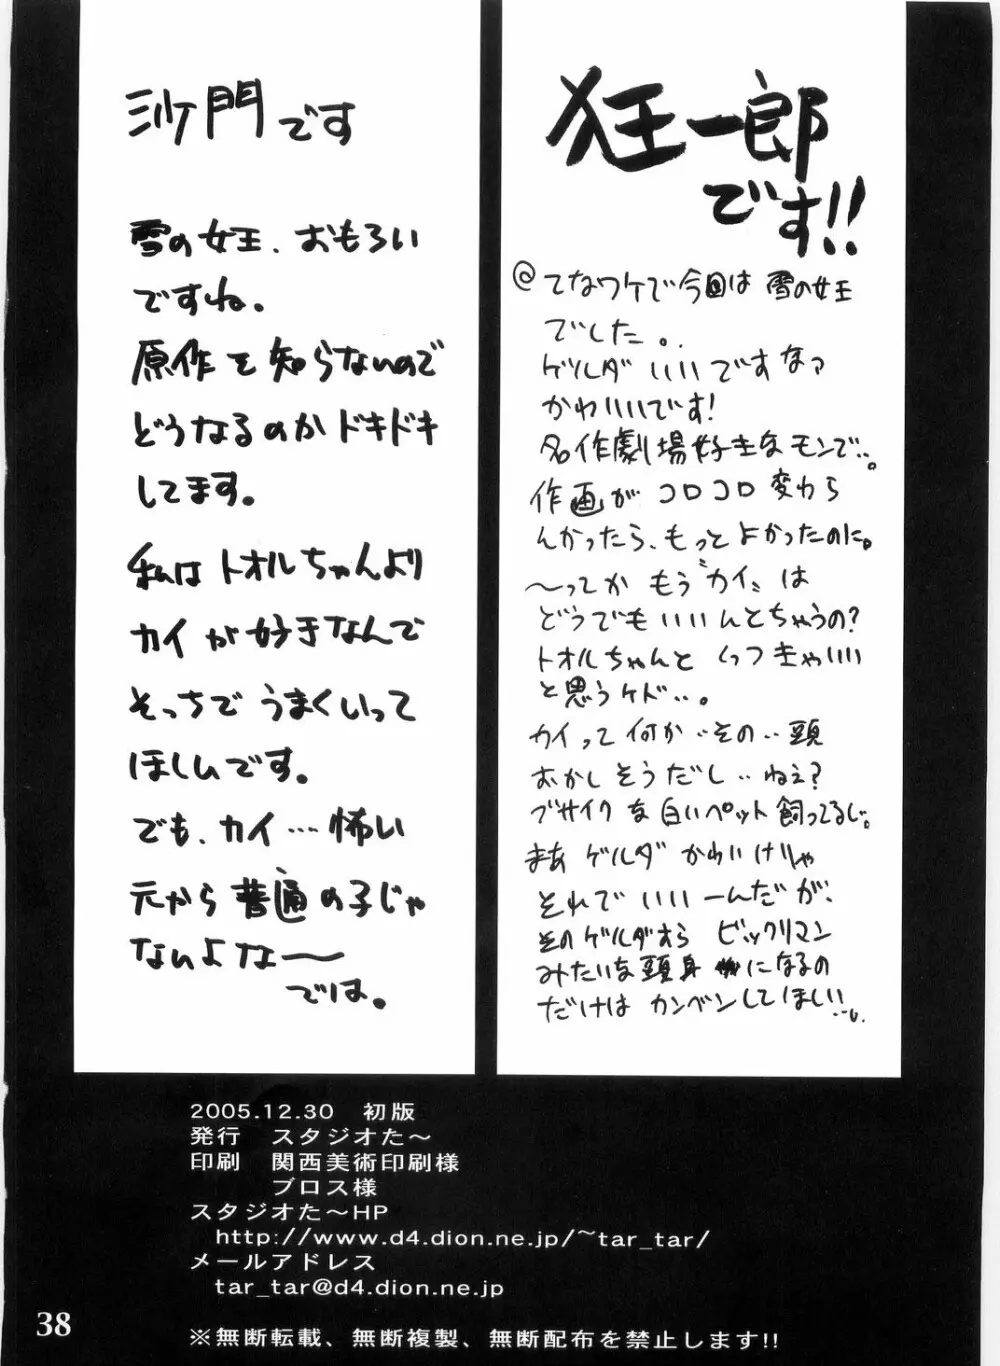 狂一郎
です!!
@てなワケで今回は 雪の女王
でした。
ゲルダ いいですなァ
かわいいです!
名作劇場好きなモンで…。
作画が コロコロ 変わら
んかったら、もっと よかったのに。
〜ってか もう〝カイ〟は
どうでも いいんとちゃうの?
トオルちゃんと くっつきゃいい
と思うケド…。
カイって 何か…その…頭
おかしそうだし…ねぇ?
ブサイクな白いペット飼ってるし。
まあ ゲルダ かわいけりゃ
それで いいーんだが、
そのゲルダすら ビックリマン
みたいな頭身 になるの
だけは カンベンしてほしい…。
沙門です
雪の女王、おもろい
ですね。
原作を知らないので
どうなるのかドキドキ
してます。
私はトオルちゃんより
カイが好きなんで
そっちでうまくいって
ほしいです。
でも、カイ…怖い
元から普通の子じゃ
ないよなー
では。
2005.12.30 初版
発行 スタジオた〜
印刷 関西美術印刷様
ブロス様
スタジオた〜HP
http://www.d4.dion.ne.jp/~tar_tar/
メールアドレス
tar_tar@d4.dion.ne.jp
38
※無断転載、無断複製、無断配布を禁止します!!